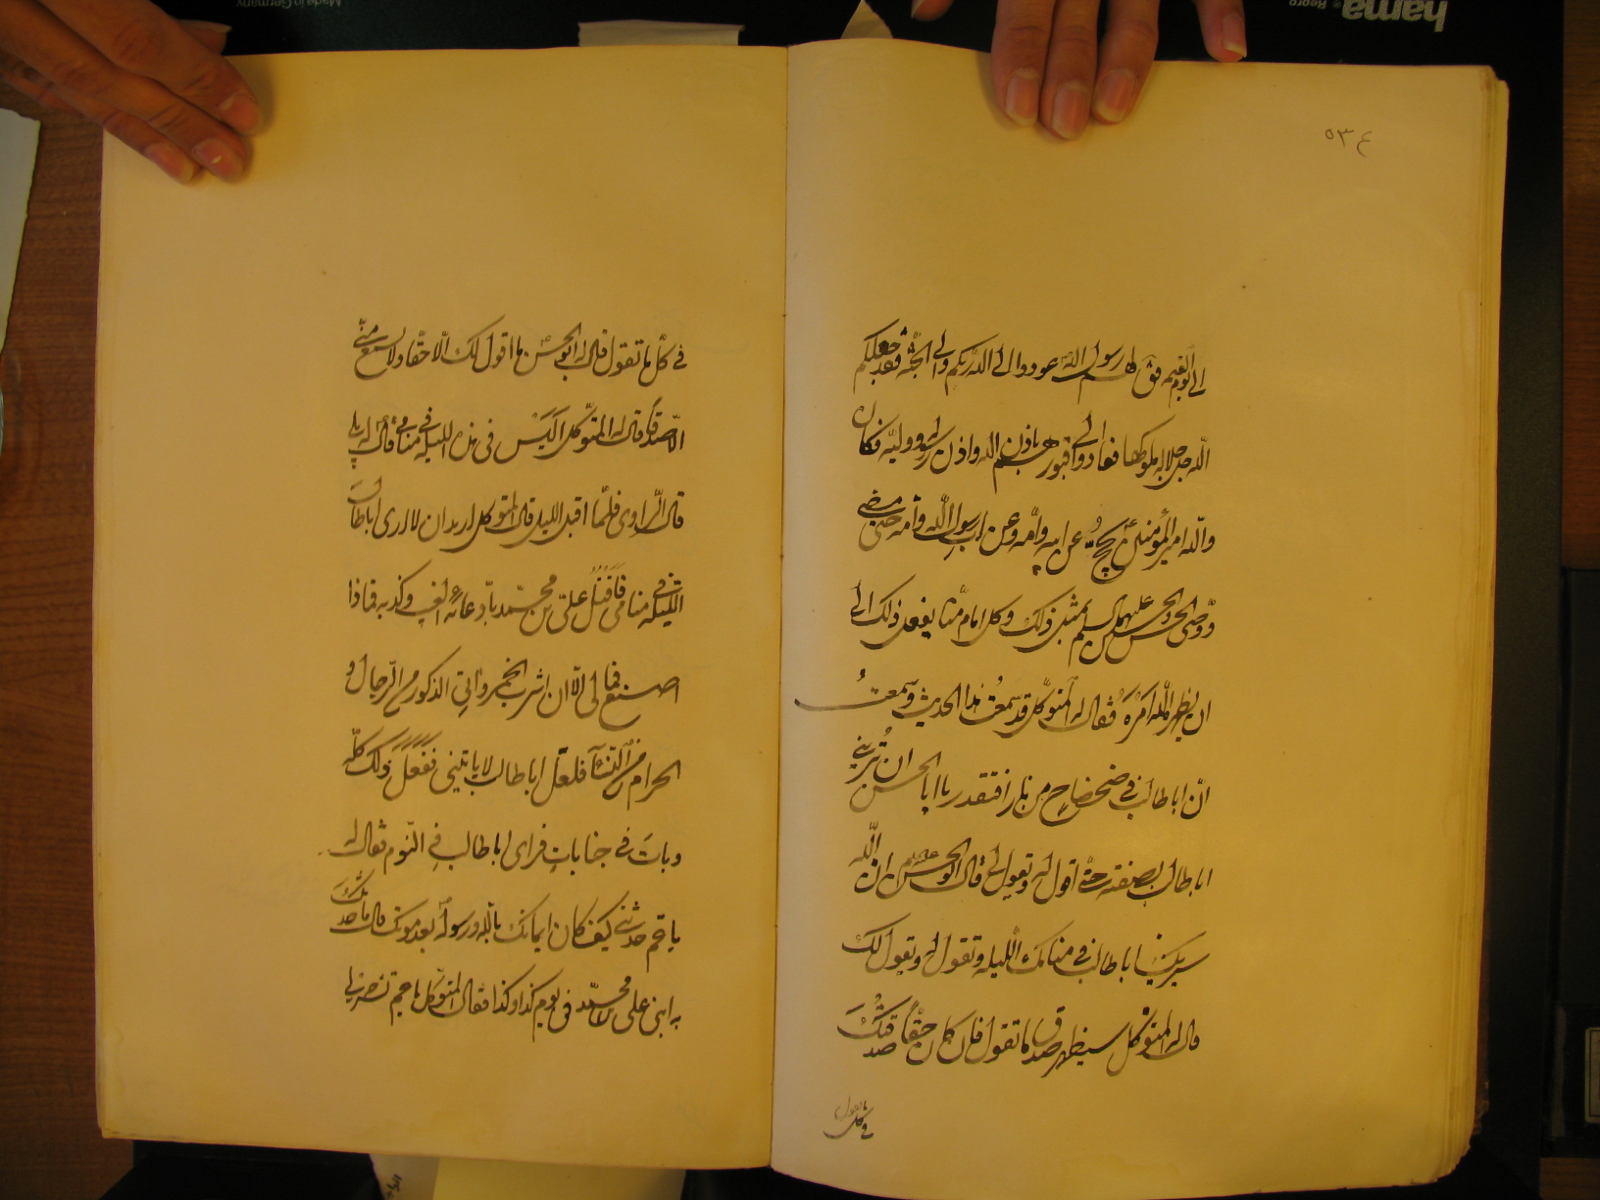 ٥٣٤
الى يوم القيمة فق لهم رسول الله عودوا الى الله ربكم والى الجنّة فقد جعلكم
الله جل جلاله ملوكها فعادوا الى قبورهم باذن الله واذن رسوله ووليه فكان
والله امير المؤمنين يحجّ عن ابيه وامّه وعن اب رسول الله وامه حتى مضى
ووصّى الحسن والحسين عليهما السلم بمثل ذلك وكل امام منّا يفعل ذلك الى
ان يظهر الله امره فقال له المتوكّل قد سمعت هذا الحديث وسمعتُ
انّ ابا طالب في ضحضاح من نار افتقدر يا ابا الحسن ان تُريني
ابا طالب بصفته حتى اقول له ويقول لي قال ابو الحسن عليه السلم ان الله
سيريك ابا طالب في منامك الليلة وتقول له ويقول لك
قال له المتوكّل سيظهر صدق ما تقول فان كان حقّاً صدّقتك
في كل ما تقول
في كلّ ما تقول قال له ابو الحسن ما اقول لك الّا حقّا ولا تسمع منّي
الّا صدقاً قال له المتوكّل اليس في هذه الليلة في منامي قال له بلى
قال الراوى فلمّا اقبل الليل قال المتوكل اريد ان لا ارى ابا طالب
الليلة في منامي فاقتل عليّ بن محمّد بادعائه الغيب وكذبه فماذا
اصنع فما لى الّا ان اشرب الخمر وآتي الذكور من الرجال و
الحرام من النساء فلعلّ ابا طالب لا ياتينى ففعل ذلك كلّه
وبات في جنابات فراى ابا طالب في النّوم فقال له
يا عم حدّثني كيف كان ايمانك بالله ورسوله بعد موتك قال ما حدّثك
به ابنى على بن محمّد في يوم كذا وكذا فقال المتوكّل يا عم تشرحه لي
hama
Repro
Made in Germany